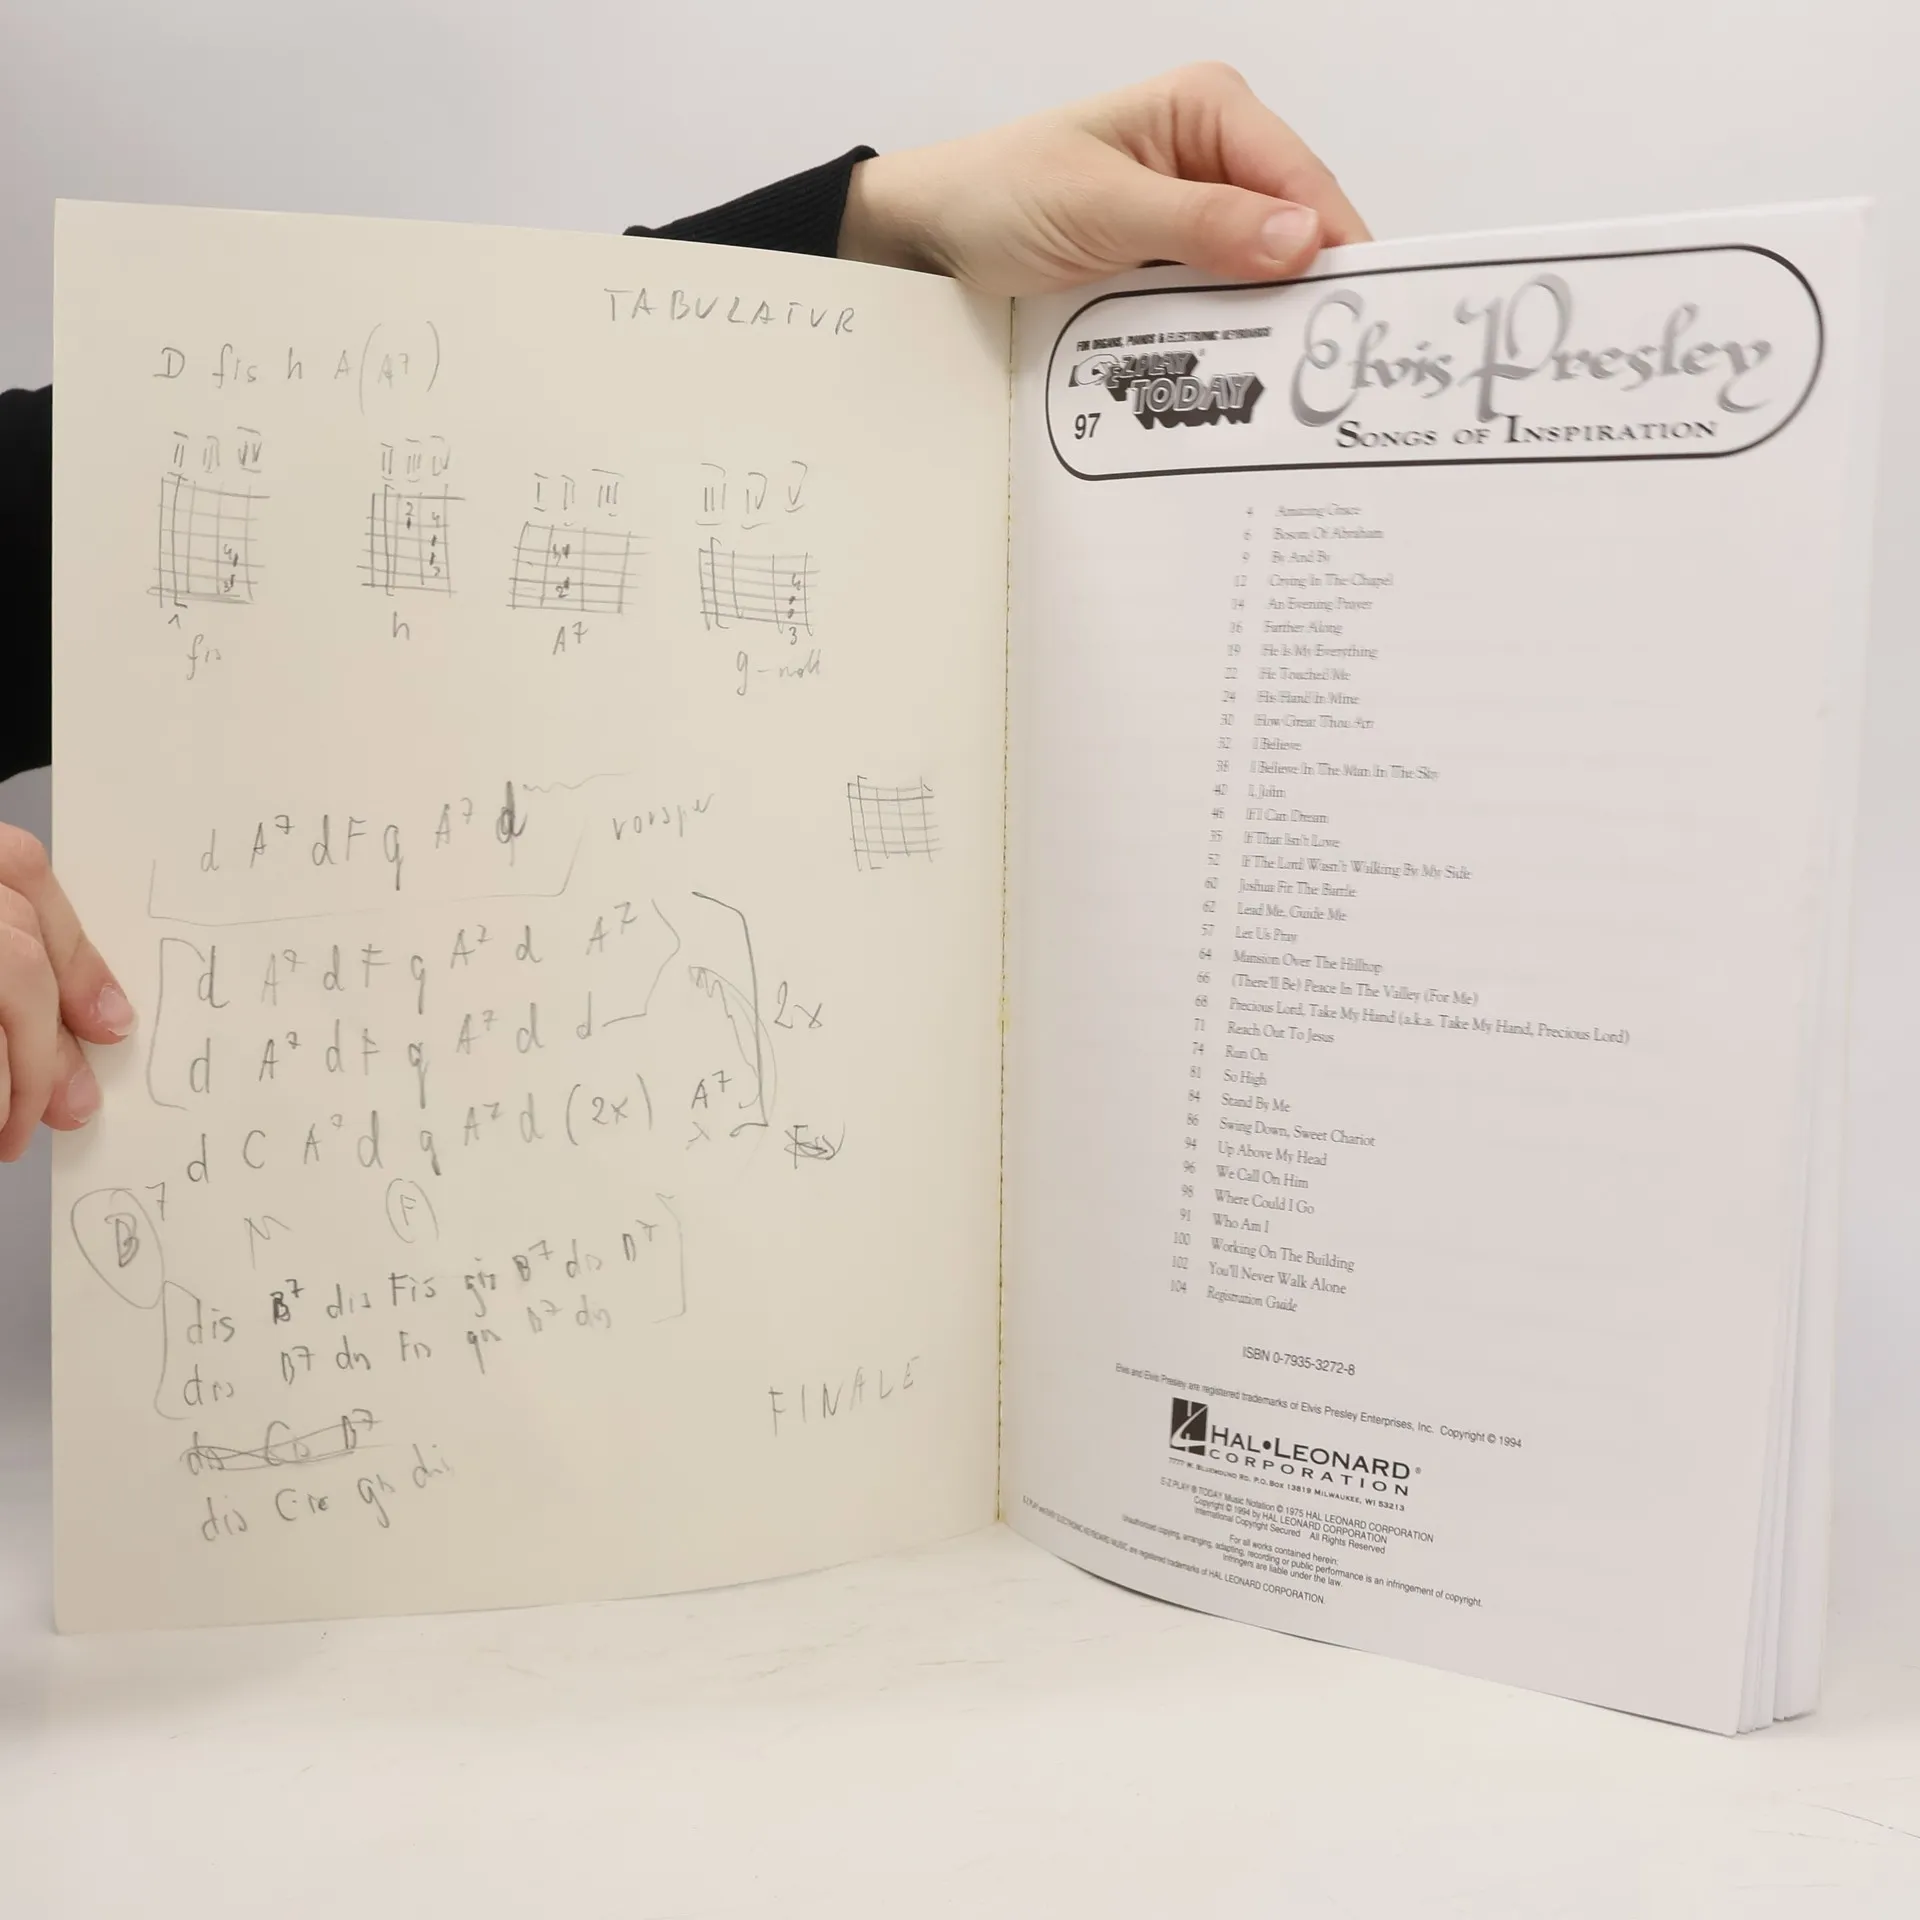 TABULATUR
D fis h A (A7)
II III IV
II III IV
I II III
III IV V
2 4
4
3
3
4
2
4
3
1
fis
h
A7
g-moll
d A7 d F g A7 d
d A7 d F g A7 d A7
d A7 d F g A7 d d
2x
d C A7 d g A7 d (2x) A7
B7
(F)
dis B7 dis Fis gis B7 dis B7
dis B7 dis Fis gis B7 dis
dis Cis B7
dis Cis gis dis
FINALE
FOR ORGANS, PIANOS & ELECTRONIC KEYBOARDS
E-Z PLAY® TODAY
97
Elvis Presley
SONGS OF INSPIRATION
4 Amazing Grace
6 Bosom Of Abraham
9 By And By
12 Crying In The Chapel
14 An Evening Prayer
16 Farther Along
19 He Is My Everything
22 He Touched Me
24 His Hand In Mine
30 How Great Thou Art
32 I Believe
38 I Believe In The Man In The Sky
42 I, John
46 If I Can Dream
35 If That Isn't Love
52 If The Lord Wasn't Walking By My Side
60 Joshua Fit The Battle
62 Lead Me, Guide Me
57 Let Us Pray
64 Mansion Over The Hilltop
66 (There'll Be) Peace In The Valley (For Me)
68 Precious Lord, Take My Hand (a.k.a. Take My Hand, Precious Lord)
71 Reach Out To Jesus
74 Run On
81 So High
84 Stand By Me
86 Swing Down, Sweet Chariot
94 Up Above My Head
96 We Call On Him
98 Where Could I Go
91 Who Am I
100 Working On The Building
102 You'll Never Walk Alone
104 Registration Guide
ISBN 0-7935-3272-8
Elvis and Elvis Presley are registered trademarks of Elvis Presley Enterprises, Inc. Copyright © 1994
HAL•LEONARD®
CORPORATION
7777 W. BLUEMOUND RD. P.O. BOX 13819 MILWAUKEE, WI 53213
E-Z PLAY ® TODAY Music Notation © 1975 HAL LEONARD CORPORATION
Copyright © 1994 by HAL LEONARD CORPORATION
International Copyright Secured All Rights Reserved
For all works contained herein:
Unauthorized copying, arranging, adapting, recording or public performance is an infringement of copyright.
Infringers are liable under the law.
E-Z PLAY and EASY ELECTRONIC KEYBOARD MUSIC are registered trademarks of HAL LEONARD CORPORATION.